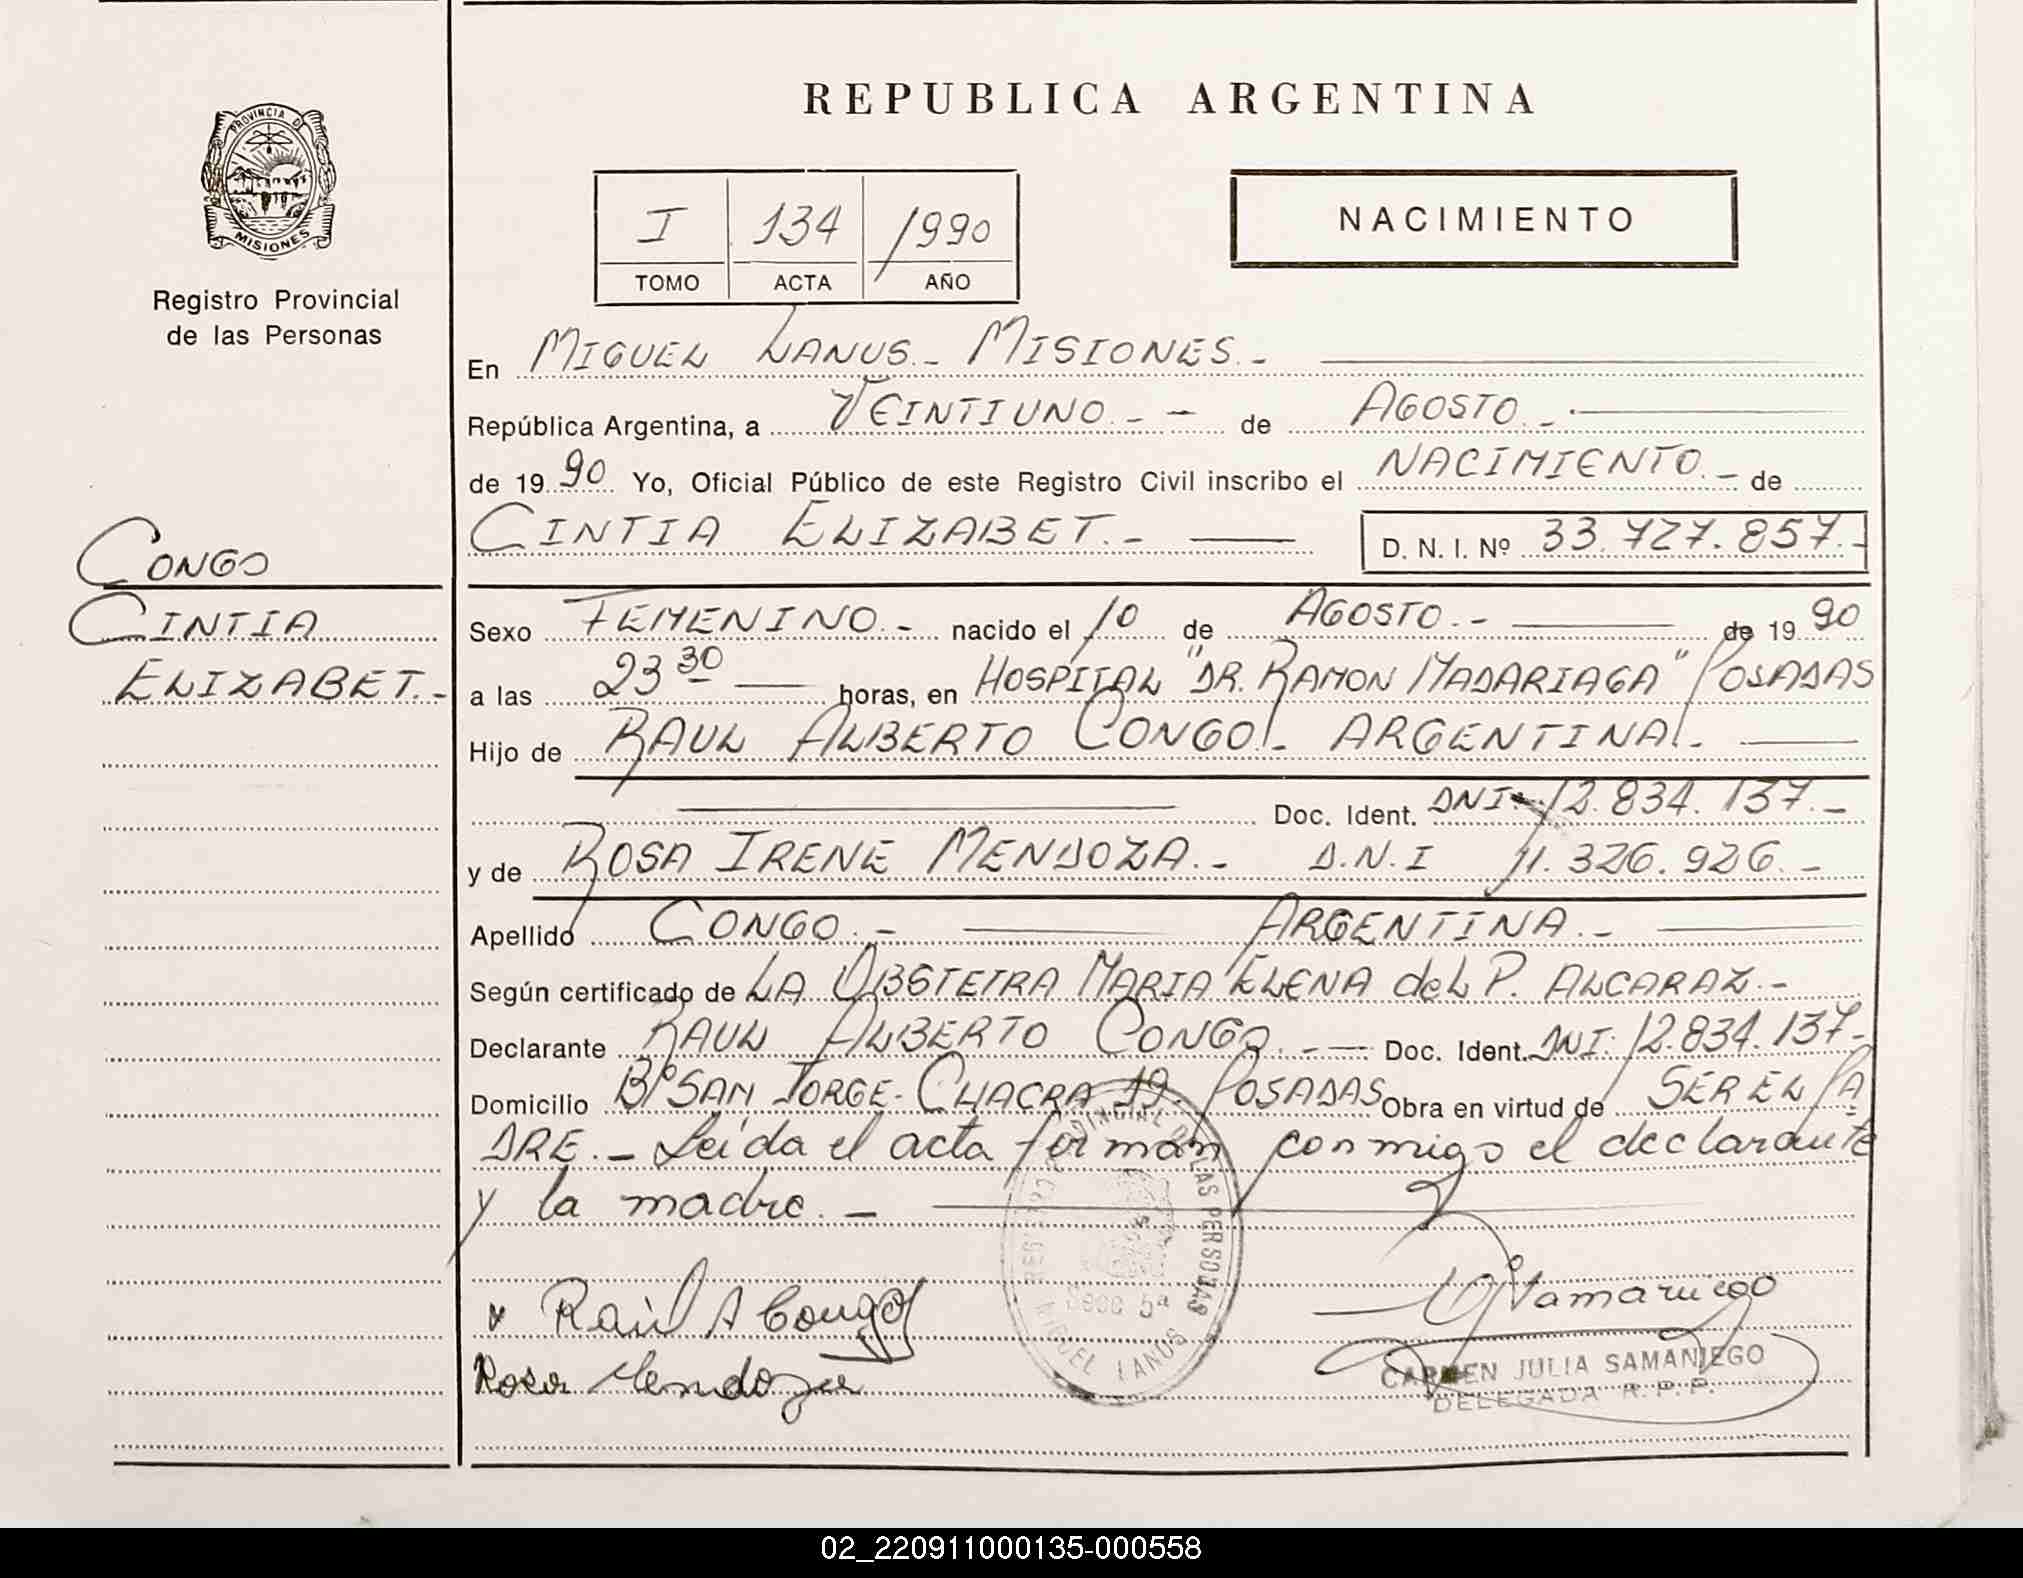 REPUBLICA ARGENTINA
PROVINCIA DE
MISIONES
Registro Provincial
de las Personas
I 134 1990
TOMO ACTA AÑO
NACIMIENTO
En MIGUEL LANUS.- MISIONES.-
República Argentina, a VEINTIUNO.- - de AGOSTO.-
de 1990 Yo, Oficial Público de este Registro Civil inscribo el NACIMIENTO.- de
CINTIA ELIZABET.- D. N. I. Nº 33.727.857.-
CONGO
CINTIA
ELIZABET.-
Sexo FEMENINO.- nacido el 10 de AGOSTO.- de 1990
a las 23 30 horas, en HOSPITAL "DR. RAMON MADARIAGA" POSADAS
Hijo de RAUL ALBERTO CONGO.- ARGENTINA.-
Doc. Ident. DNI. 12.834.137.-
y de ROSA IRENE MENDOZA.- D.N.I 11.326.926.-
Apellido CONGO.- ARGENTINA.-
Según certificado de LA OBSTETRA MARIA ELENA del P. ALCARAZ.-
Declarante RAUL ALBERTO CONGO.- Doc. Ident. DNI. 12.834.137-
Domicilio Bº SAN JORGE- CHACRA 19. POSADAS Obra en virtud de SER EL PA
DRE.- Leída el acta firman conmigo el declarante
y la madre.-
REGISTRO PROVINCIAL DE LAS PERSONAS
Secc 5ª
MIGUEL LANUS
Raúl A Congo
Rosa Mendoza
CARMEN JULIA SAMANIEGO
DELEGADA R.P.P.
02_220911000135-000558